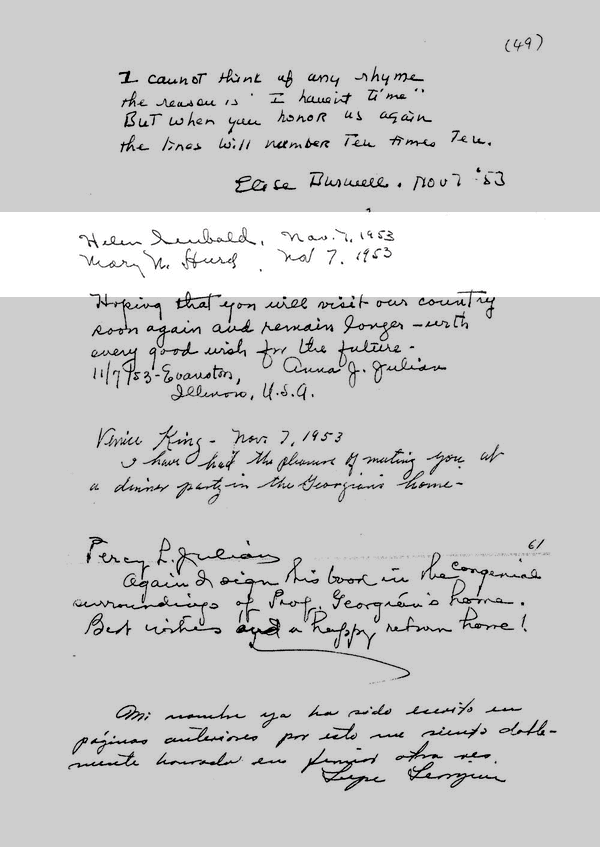 (49)
I cannot think of any rhyme
the reason is "I haven't time"
But when you honor us again
the lines will number Ten times Ten.
Elise Burwell. Nov 7 '53
Helen, Nov. 7, 1953
Mary N. Hurd. Nov 7. 1953
Hoping that you will visit our country
soon again and remain longer - with
every good wish for the future -
11/7/53 - Evanston, Anna J. Julian
Illinois, U.S.A.
Venice King - Nov. 7, 1953
I have had the pleasure of meeting you at
a dinner party in the Georgian's home -
61
Percy L. Julian
Again I sign this book in the congenial
surroundings of Prof. Georgian's home.
Best wishes and a happy return home!
Mi nombre ya ha sido escrito en
páginas anteriores por esto me siento doble-
mente honrada en otra ves.
Lupe Georgian